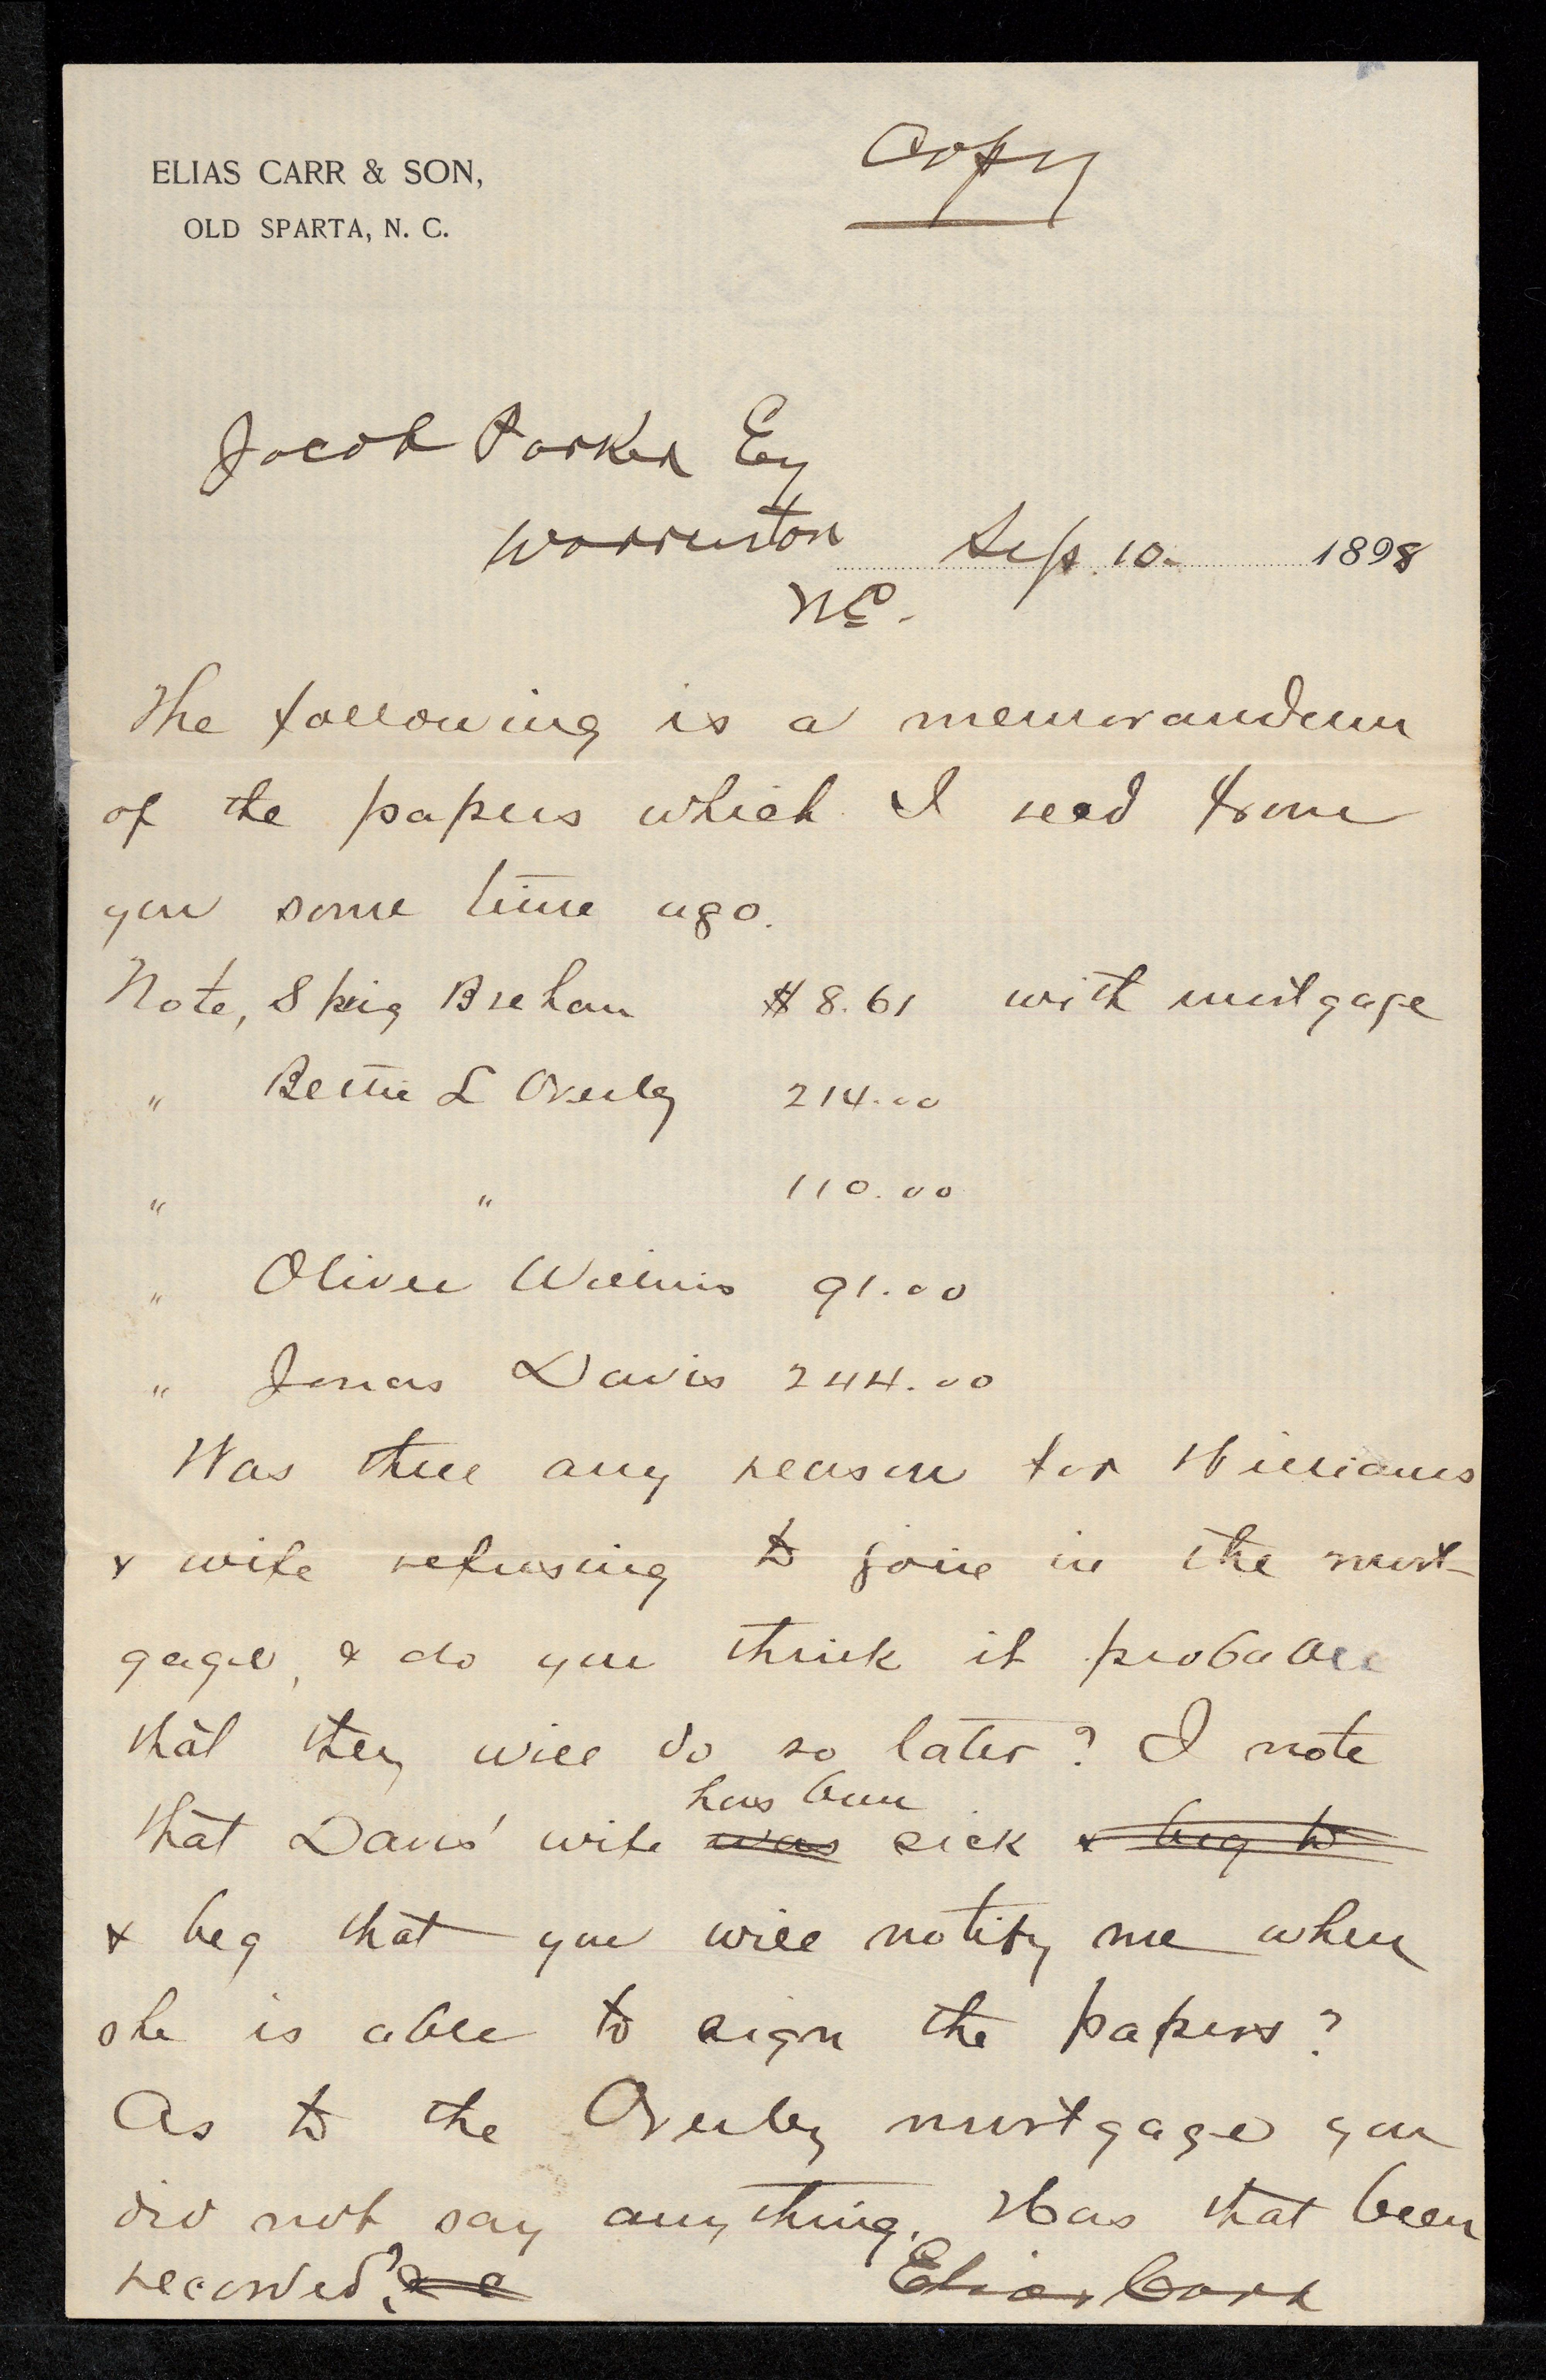 ELIAS CARR & SON,
OLD SPARTA, N. C.
Copy
Jacob Parker Esq
Warrenton Sep. 10. 1898
N.C.
The following is a memorandum
of the papers which I recd from
you some time ago.
Note, Skig Breham $8.61 with mortgage
" Bettie L Overby 214.00
" " 110.00
" Oliver Williams 91.00
" Jonas Davis 244.00
Was there any reason for Williams
& wife refusing to join in the mort-
gage, & do you think it probable
that they will do so later? I note
has been
that Davis' wife was sick & beg to
& beg that you will notify me when
she is able to sign the papers?
As to the Overby mortgage you
did not say anything. Has that been
recorded?
Elias Carr